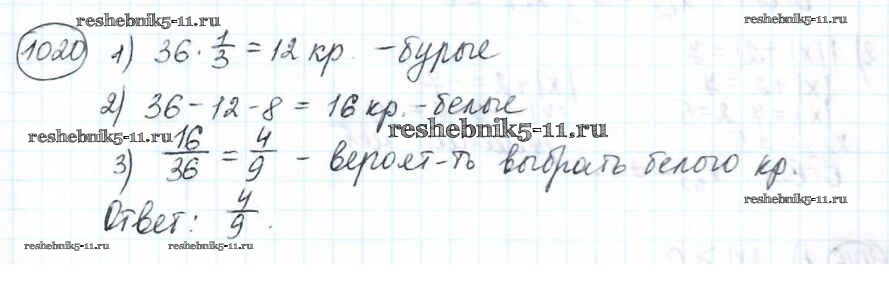 reshebnik5-11.ru
reshebnik5-11.ru
1020 1) 36 · 1/3 = 12 кр. – бурые
2) 36 – 12 – 8 = 16 кр. – белые
reshebnik5-11.ru
reshebnik5-11.ru
3) 16/36 = 4/9 – вероят-ть выбрать белого кр.
Ответ: 4/9.
reshebnik5-11.ru
reshebnik5-11.ru
reshebnik5-11.ru